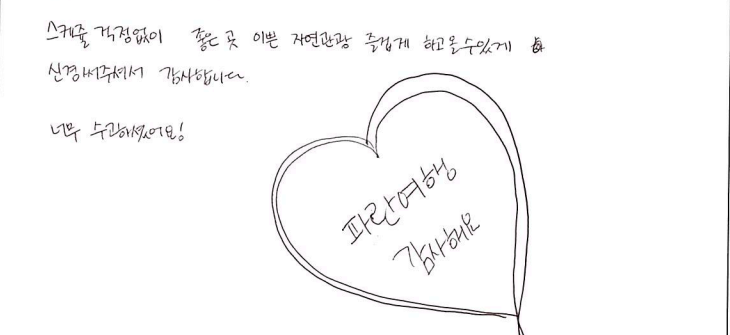 스케쥴 걱정없이 좋은 곳 이쁜 자연관광 즐겁게 하고올수있게
신경써주셔서 감사합니다.
너무 수고하셨어요!
파란여행
감사해요